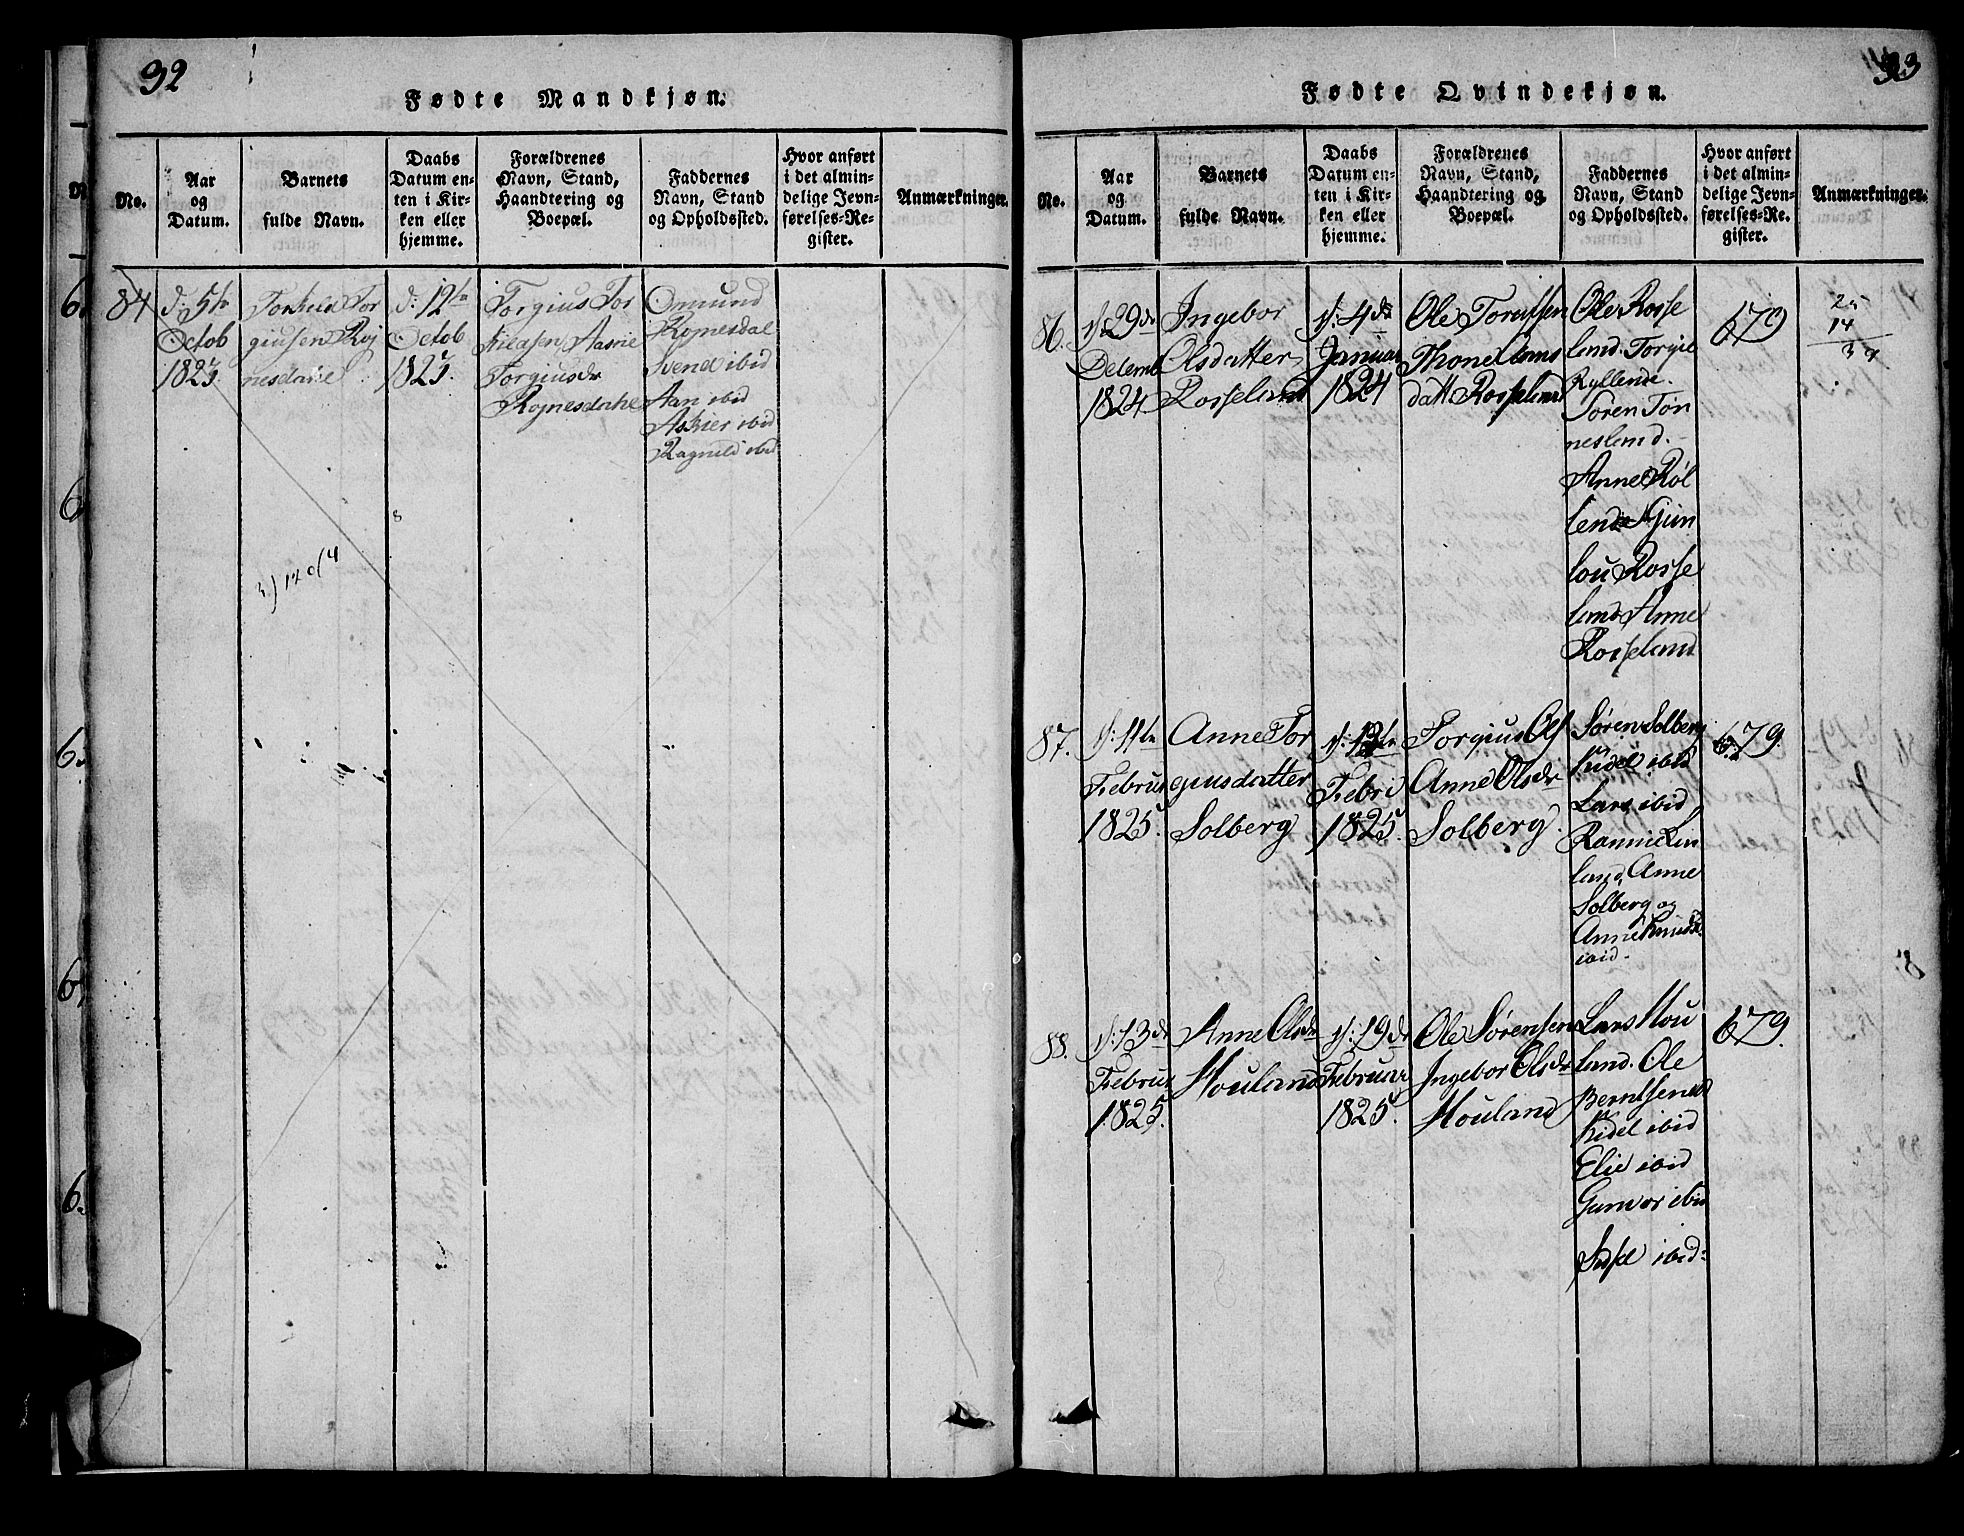 92
Fødte Mandkjøn.
No.
Aar
og
Datum.
Barnets
fulde Navn.
Daabs
Datum en-
ten i Kir-
ken eller
hjemme.
Forældrenes
Navn, Stand,
Haandtering og
Boepæl.
Faddernes
Navn, Stand
og Opholdssted.
Hvor anført
i det almin-
delige Jevn-
førelses-Re-
gister.
Anmærkninger.
84
d: 5te
Octob
1825.
Torkild Tor
giusen Roj
nesdahl
d: 12te
Octob
1825.
Torgius Tor
kildsen, Aasne
Torgiusdr
Rojnesdahl
Omund
Romesdal
Svend ibid
Aan ibid
Askier ibid
Ragnild ibid
93
Fødte Qvindekjøn.
No.
Aar
og
Datum.
Barnets
fulde Navn.
Daabs
Datum en-
ten i Kir-
ken eller
hjemme.
Forældrenes
Navn, Stand,
Haandtering og
Boepæl.
Faddernes
Navn, Stand
og Opholdssted.
Hvor anført
i det almin-
delige Jevn-
førelses-Re-
gister.
Anmærkninger.
86.
d: 29de
Decemb
1824
Ingebor
Olsdatter
Rosseland
d: 4de
Januar
1824
Ole Torussen
Thone Lars
datt. Rosseland
Ole Rosse
land. Torgie
Ryllende.
Søren Tøn
nesland.
Anne Røl
lend
lou Rosse
land Anne
Rosseland
679
25
14
39
87.
d: 11te
Februar
1825.
Anne Tor
giusdatter
Solberg
d: 12te
Febri
1825.
Torgius Ols
Anne Olsdr
Solberg.
Søren Solberg
Kidel ibid
Lars ibid
Rannie Lin
land, Anne
Solberg og
Anne Knudsd.
ibid.
679.
88.
d: 13de
Februar
1825.
Anne Olsdr
Houland
d: 19de
Februar
1825.
Ole Sørensen
Ingebor Olsdr
Houland
Lars Hou
land. Ole
Berntsen ibid
Kidel ibid
Elie ibid
Gunvor ibid
Sidsel ibid:
679.